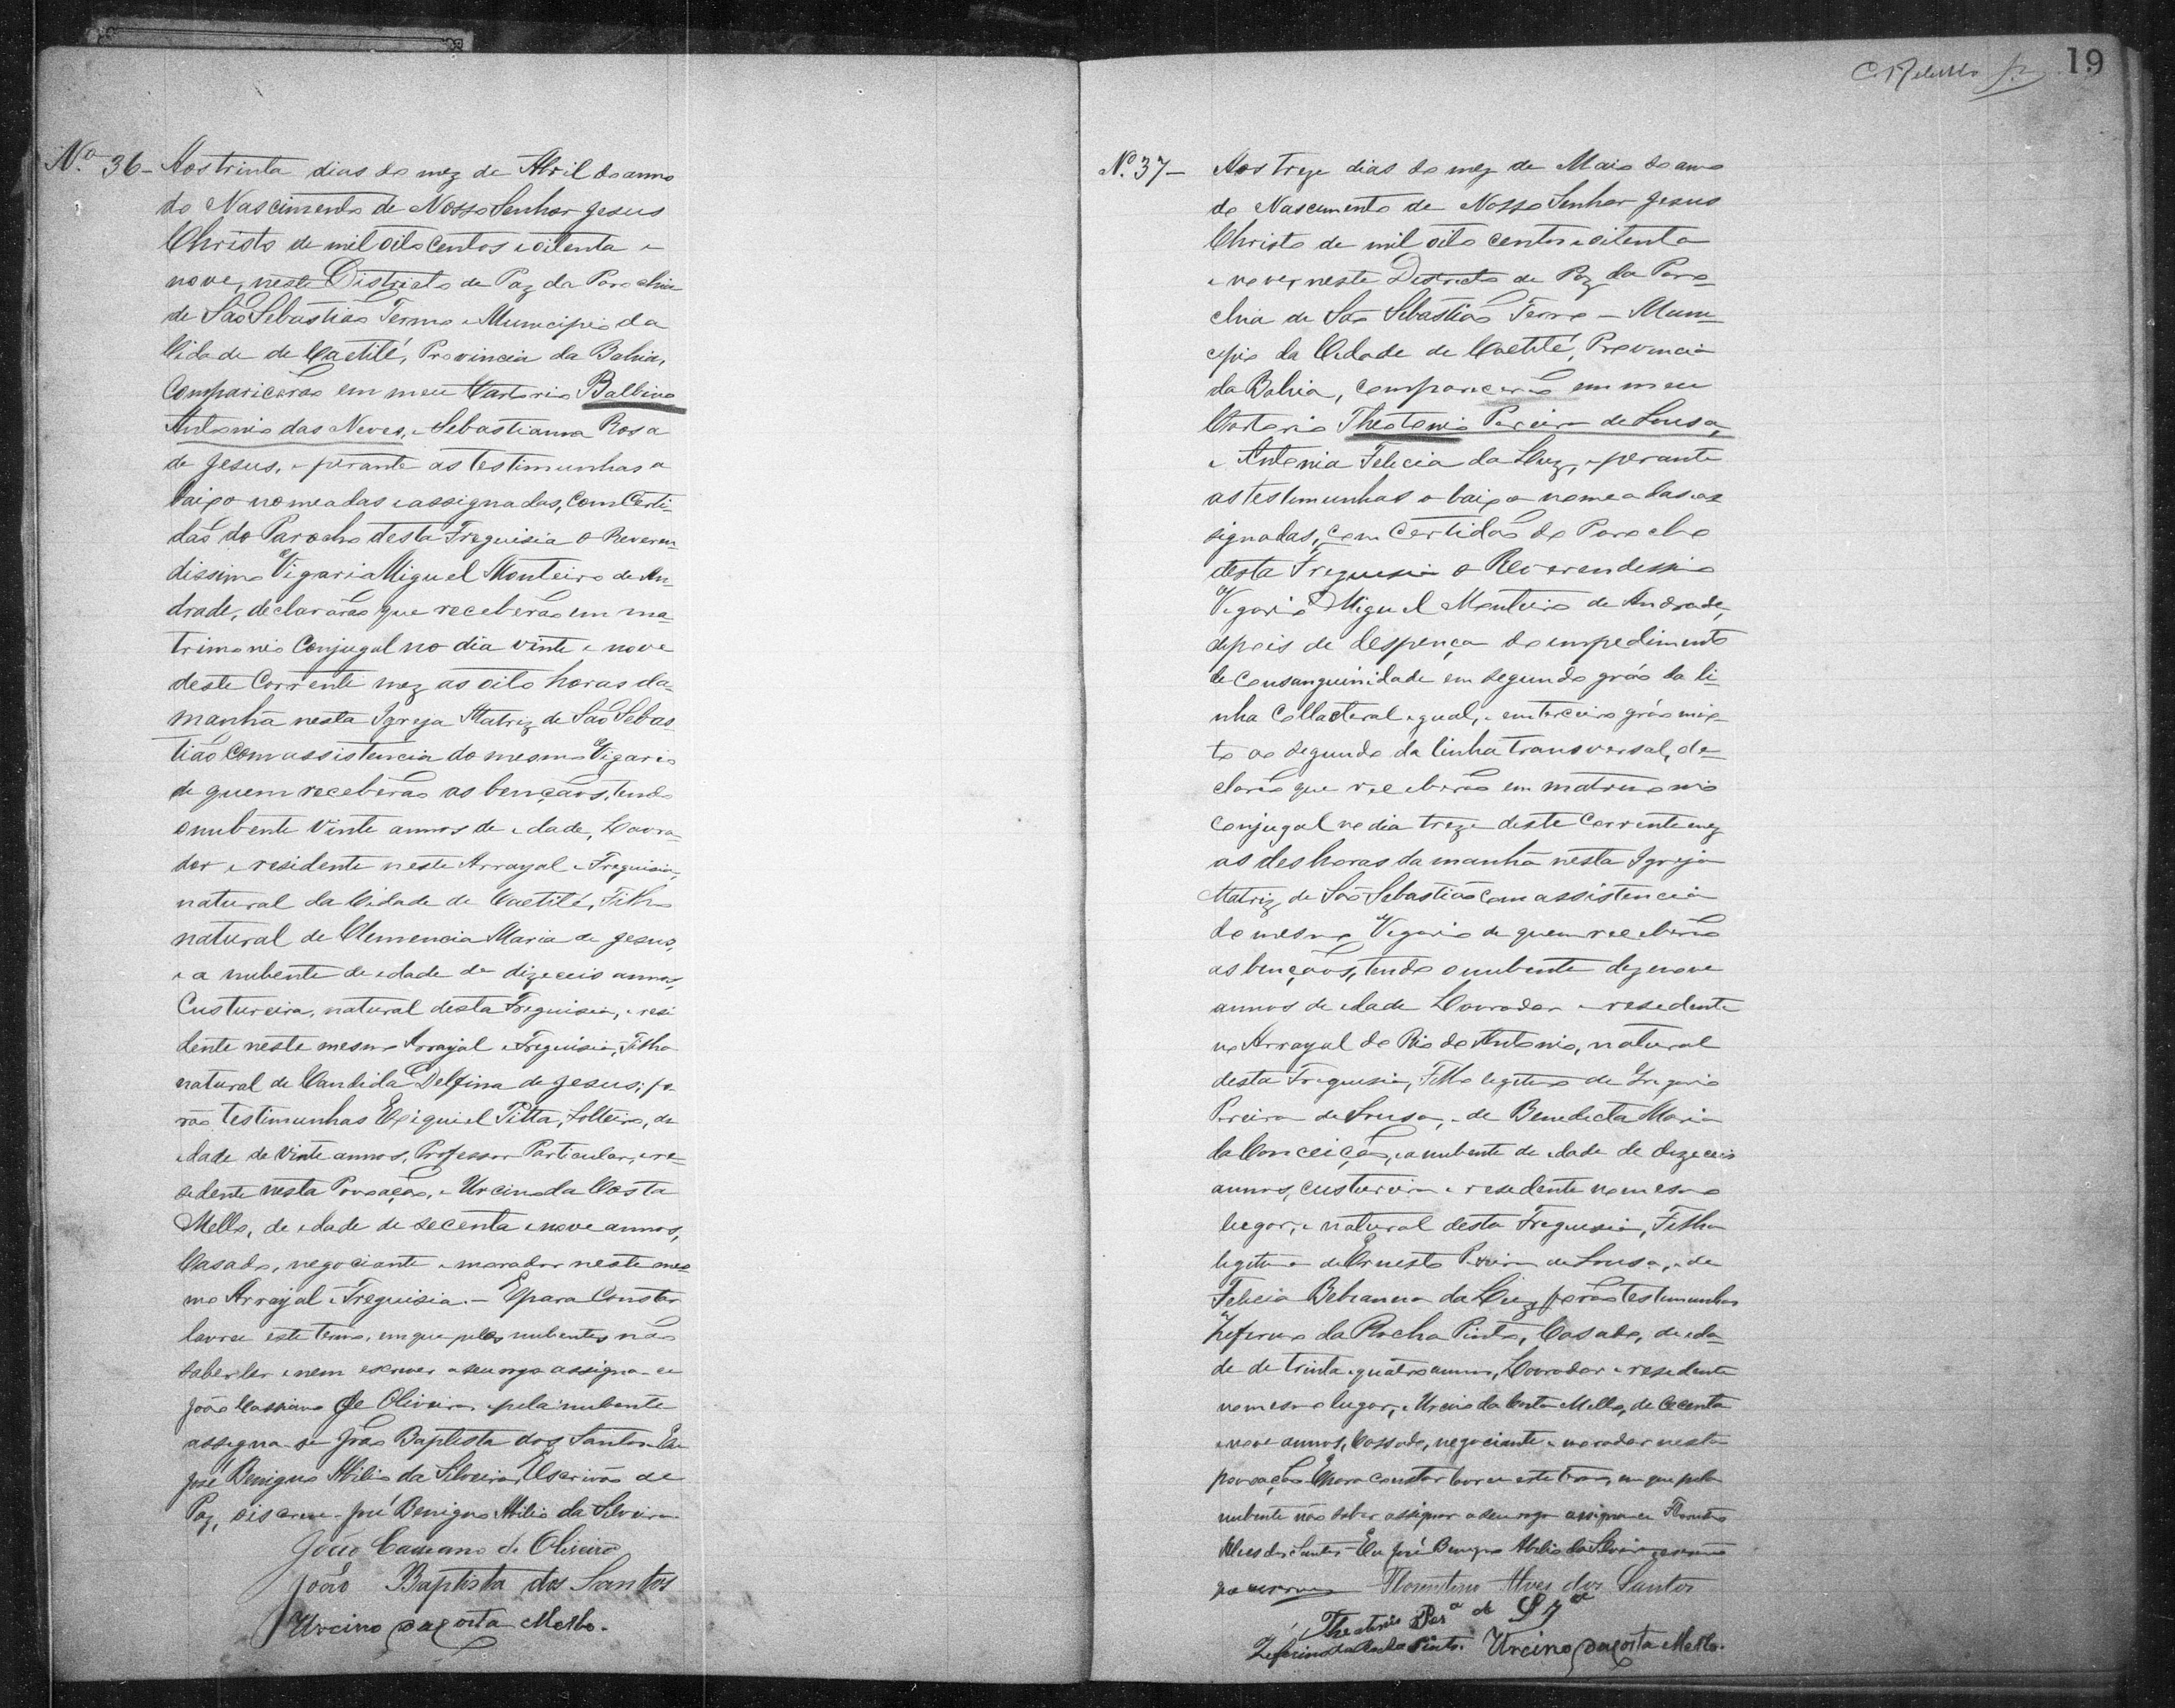 Nº 36- Aos trinta dias do mez de Abril do anno
do Nascimento de Nosso Senhor Jesus
Christo de mil oito centos e oitenta e
nove, neste Districto de Paz da Parochia
de São Sebastião Termo e Municipio da
Cidade de Caetité, Provincia da Bahia,
Comparicerão em meu Cartorio Balbino
Antonio das Neves, e Sebastianna Rosa
de Jesus, e perante as testimunhas a
baixo nomeadas e assignadas, Com Certi-
dão do Parocho desta Freguisia o Reveren-
dissimo Vigario Miguel Monteiro de An-
drade, declararão que receberão em ma-
trimonio Conjugal no dia vinte e nove
deste Corrente mez as oito horas da
manhã nesta Igreja Matriz de São Sebas
tião Com assistencia do mesmo Vigario
de quem receberão as bençaõs, tendo
o nubente vinte annos de edade, Lavra-
dor e residente neste Arrayal e Freguisia,
natural da Cidade de Caetité, Filho
natural de Clemencia Maria de Jesus,
e a nubente de edade de dizeceis annos,
Custureira, natural desta Freguisia, e resi
dente neste mesmo Arrayal e Freguisia, Filha
natural de Candida Delfina de Jesus; fo-
rão testimunhas Exiquiel Pitta, Solteiro, de
edade de vinte annos, Professor Particular, e re-
sedente nesta Povoação, e Urcino da Costa
Mello, de edade de secenta e nove annos,
Casado, negociante e morador neste mes
mo Arrayal e Freguisia. - E para Constar
lavrei este termo, em que pelos nubentes não
saber ler e nem escrever a seu rogo assigna-se
João Cassiano de Oliveira e pela nubente
assigna-se João Baptista dos Santos. Eu
José Benigno Abilio da Silveira, Escrivão de
Paz, o iscrevi. José Benigno Abilio da Silveira.
João Cassiano de Oliveira
João Baptista dos Santos
Urcino da Costa Mello.
19
Nº 37- Aos treze dias do mez de Maio do anno
do Nascimento de Nosso Senhor Jesus
Christo de mil oito centos e oitenta
e nove, neste Districto de Paz da Paro-
chia de São Sebastião Termo e Muni-
cipio da Cidade de Caetité, Provincia
da Bahia, Comparecerão em meu
Cartorio Theotonio Pereira de Sousa,
e Antonia Felicia da Luz, e perante
as testimunhas a baixo nomeadas e as
signadas, Com Certidão do Parocho
desta Freguesia o Reverendissimo
Vigario Miguel Monteiro de Andrade,
depois de despença do empedimento
de Consanguinidade em segundo gráo da li-
nha Collacteral egual, e em terceiro gráo mix-
to ao segundo da linha transversal, de-
clarão que receberão em matrimonio
Conjugal no dia treze deste Corrente mez
as des horas da manhã nesta Igreja
Matriz de São Sebastião com assistencia
do mesmo Vigario de quem receberão
as bençaõs, tendo o nubente dezenove
annos de edade Lavrador e resedente
no Arrayal do Rio do Antonio, natural
desta Freguesia, Filho legitimo de Gregorio
Pereira de Sousa, e de Benedicta Maria
da Conceição, e a nubente de edade de dizeceis
annos, custureira e resedente no mesmo
lugar, e natural desta Freguesia, Filha
legitima de Ernesto Pereira de Sousa, e de
Felicia Bebianna da Luz, forão testimunhas
Zeferino da Rocha Pinto, Casado, de eda-
de de trinta e quatro annos, Lavrador e resedente
no mesmo lugar, e Urcino da Costa Mello, de cecenta
e nove annos, Cassado, negociante e morador nesta
povoação. E para constar lavrei este termo, em que pela
nubente não saber assignar a seu rogo assigna-se Florentino
Alves dos Santos. Eu José Benigno Abilio da Silveira, escrivão
Florentino Alves dos Santos
Theotonio Perª de Szª
Zeferino da Rocha Pinto. Urcino da Costa Mello.